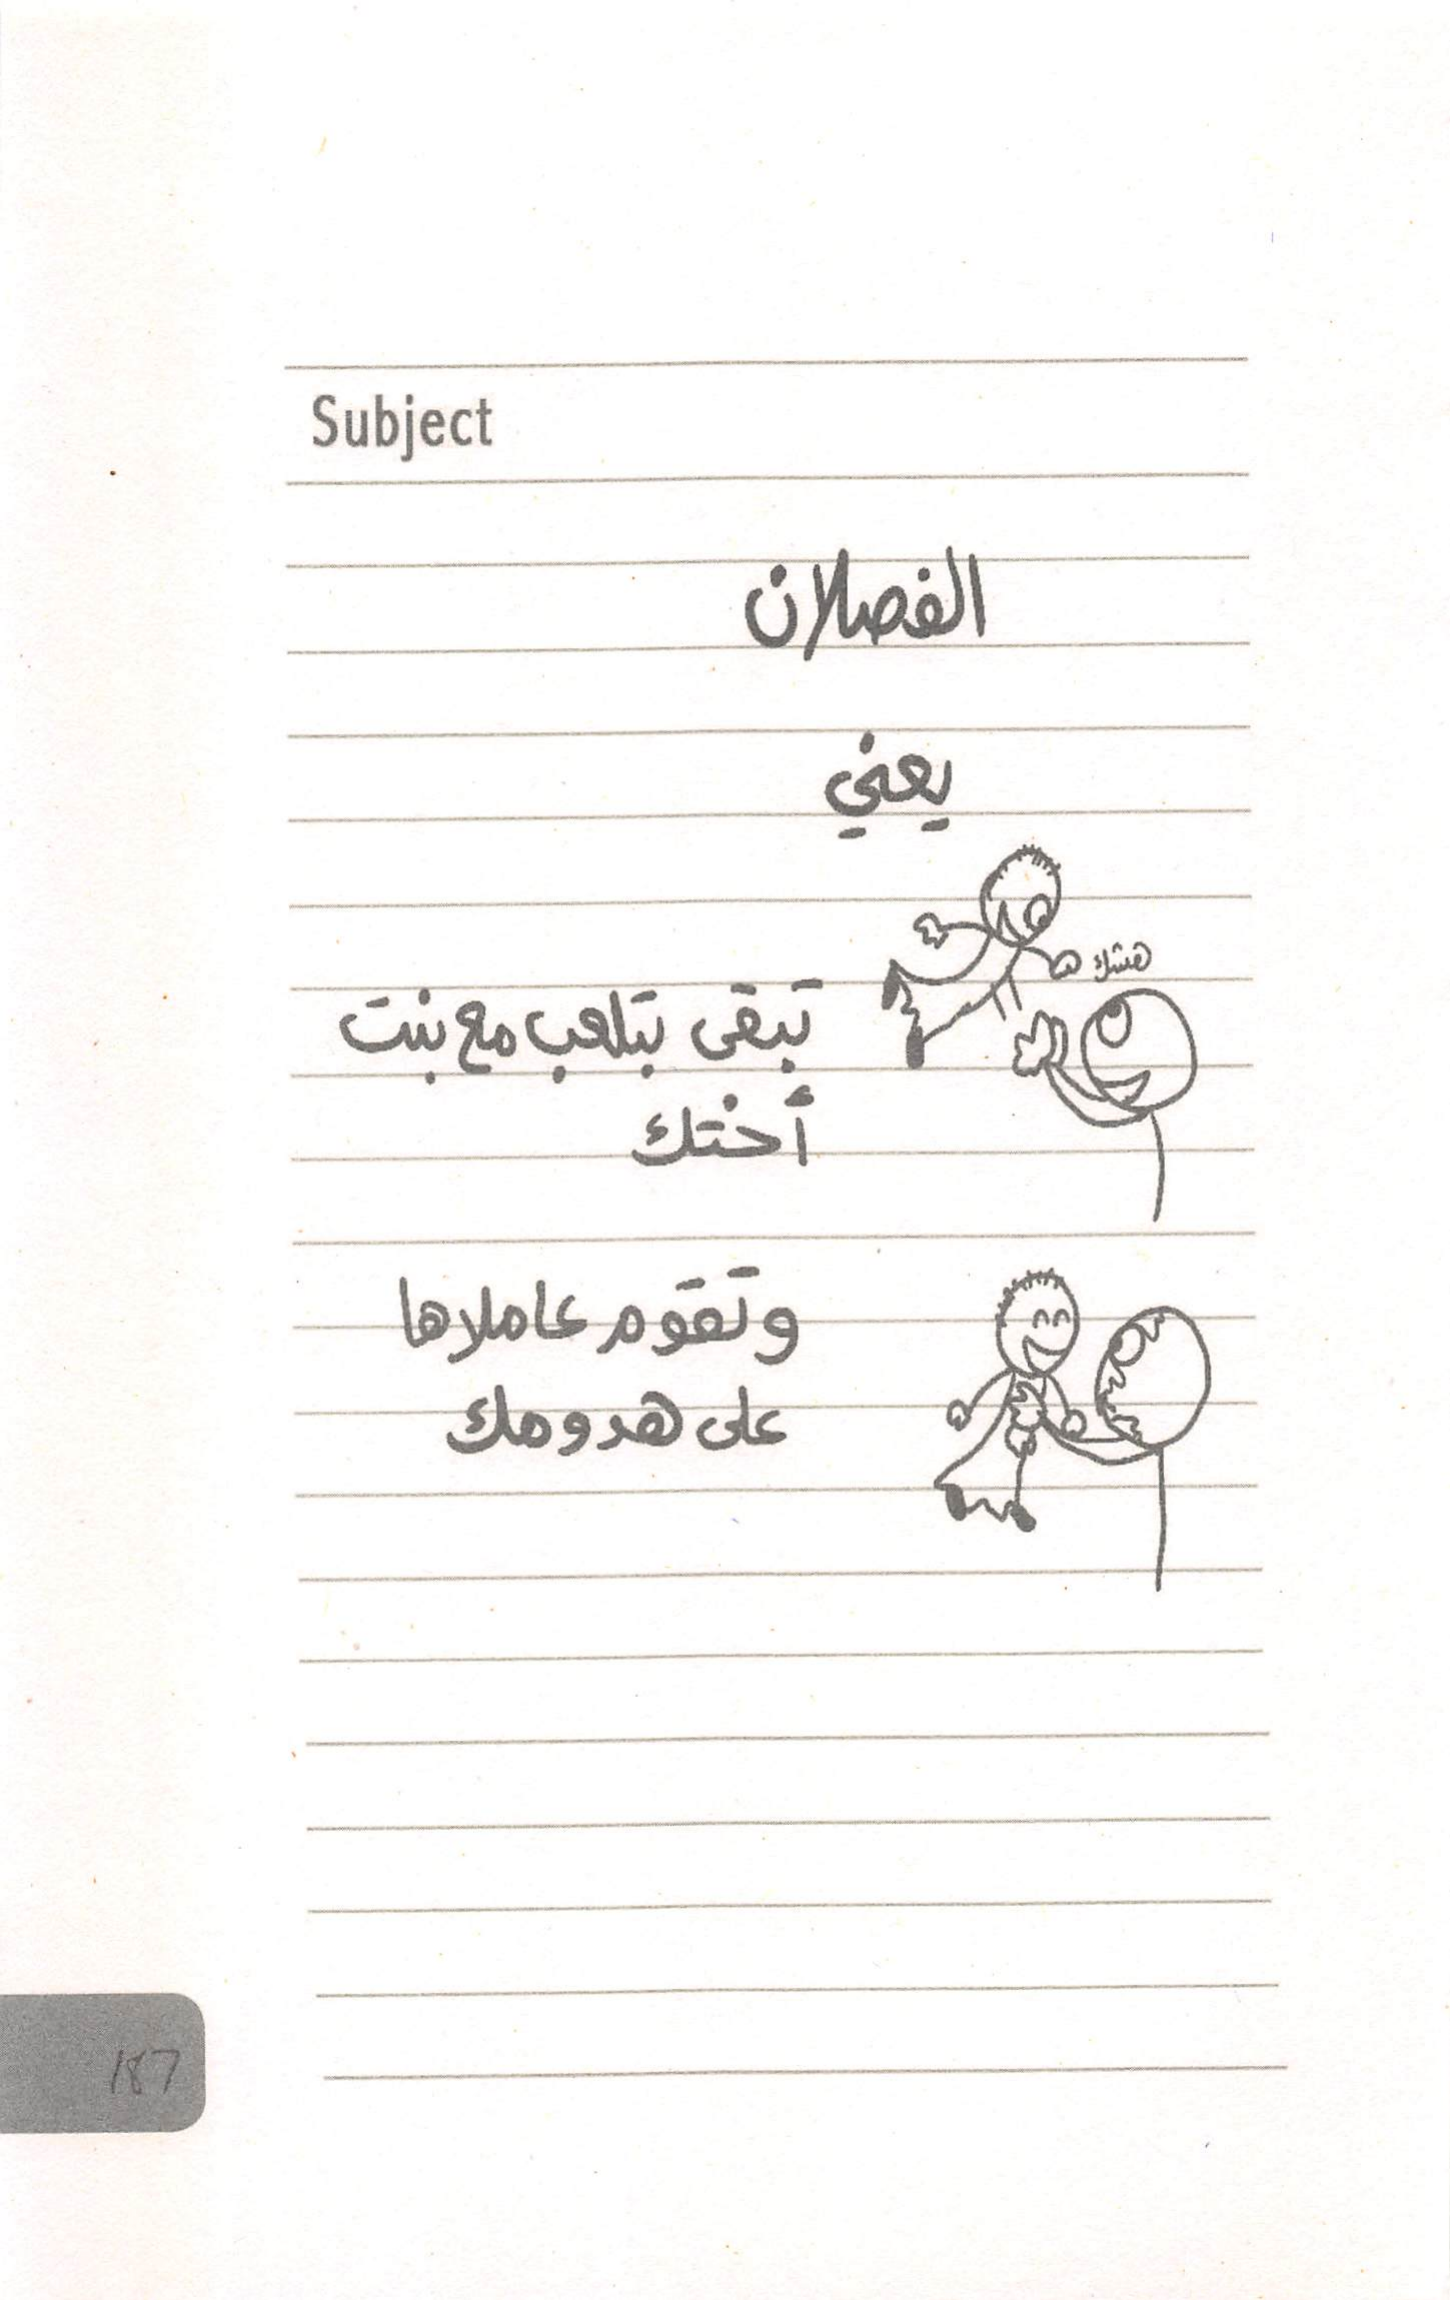 Subject
الفصلان
يعني
هشك
تبقى بتلعب مع بنت
أختك
وتقوم عاملاها
على هدومك
187